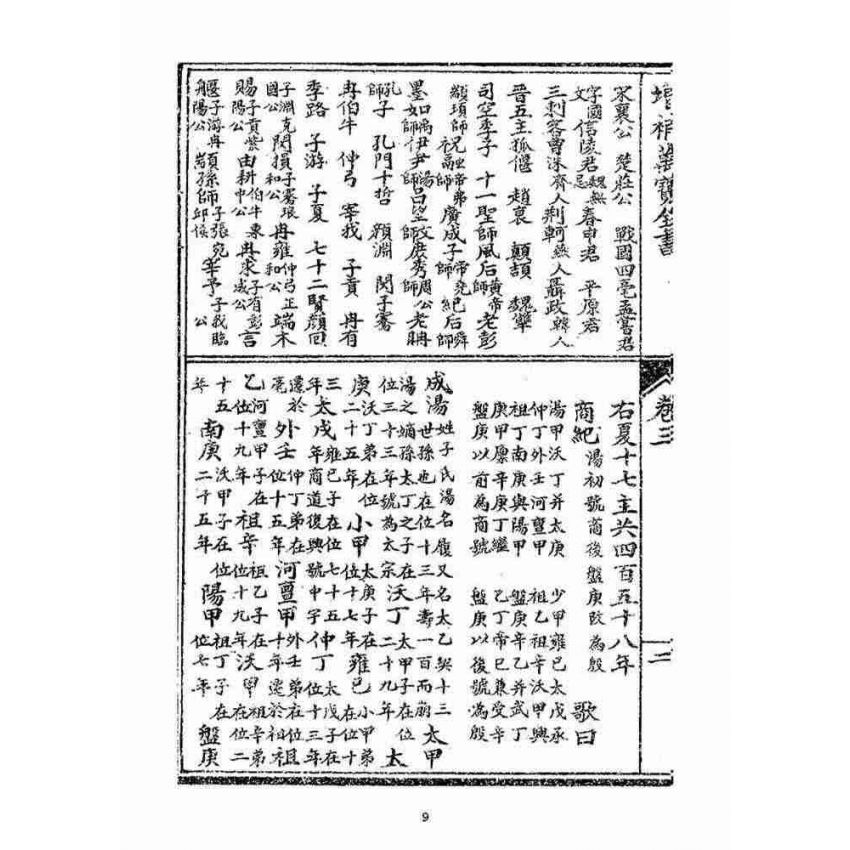 增補萬寶全書
卷三
二
宋襄公 楚莊公 戰國四毫孟嘗君
文字國 信陵君魏無忌 春申君 平原君
三刺客曹沫齊人荆軻燕人聶政韓人
晉五主狐偃 趙衰 顛頡 魏犨
司空季子 十一聖師風后黃帝師老彭
顓頊師 祝融帝嚳師 廣成子帝堯師 紀后舜師
墨如禹師伊尹湯師呂望文師庶秀周公師老聃
孔子師 孔門十哲 顏淵 閔子騫
冉伯牛 仲弓 宰我 子貢 冉有
季路 子游 子夏 七十二賢顏回
子淵克國公 閔損子騫琅和公 冉雍仲弓正和公 端木
賜子貢紫陽公 由耕伯牛東中公 冉求子有彭城公 言
偃子游丹陽公 顓孫師子張宛邱侯 宰予子我臨公
右夏十七主共四百五十八年
商紀 湯初號商後盤庚改為殷 歌曰
湯甲沃丁并太庚 少甲雍已太戊承
仲丁外壬河亶甲 祖乙祖辛沃甲與
祖丁南庚與陽甲 盤庚辛乙并武丁
庚甲廪辛庚丁繼 乙丁帝已兼受辛
盤庚以前為商號 盤庚以後號為殷
成湯姓子氏湯名履又名太乙契十三世孫也在位十三年壽一百而崩 太甲
湯之嫡孫太丁之子在位三十三年號為太宗 沃丁太甲子在位二十九年 太
庚沃丁弟在位二十五年 小甲太庚子在位十七年 雍已小甲弟在位十
三年 太戊雍已子在位七十五年商道復興號中宇 仲丁太戊子在位十三年
遷於亳 外壬仲丁弟在位十五年 河亶甲外壬弟在位十年遷於相 祖
乙河亶甲子在位十九年 祖辛祖乙子在位十九年 沃甲祖辛弟在位二
十五年 南庚沃甲子在位二十五年 陽甲祖丁子在位七年 盤庚
9